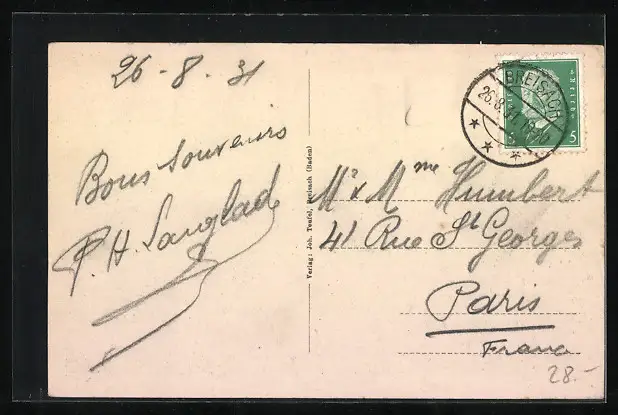 26-8.31
Bons souvenirs
P. H. Langlade
Verlag: Joh. Teufel, Breisach (Baden)
BREISACH
26.8.31
5
Mr & Mme Humbert
41 Rue St Georges
Paris
France
28.-